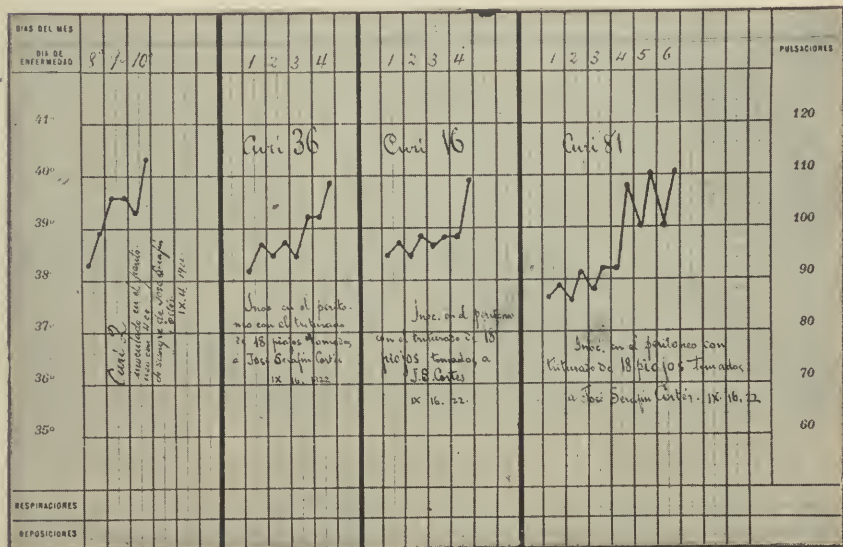 DIAS DEL MES
DIA DE ENFERMEDAD
8° 9° 10°
1 2 3 4
1 2 3 4
1 2 3 4 5 6
PULSACIONES
41°
40°
39°
38°
37°
36°
35°
120
110
100
90
80
70
60
Curi 2
inoculado en el perito-
neo con 4 cc
de sangre de José Serafin
Cortés
Curi 36
Inoc en el perito-
neo con el triturado
de 18 piojos tomados
a José Serafin Cortés
IX 16. 1922
Curi 16
Inoc. en el peritoneo
con el triturado de 18
piojos tomados a
J.S. Cortes
IX 16. 22.
Curi 81
Inoc. en el peritoneo con
triturado de 18 piojos tomados
a José Serafin Cortés. IX. 16. 22
RESPIRACIONES
DEPOSICIONES